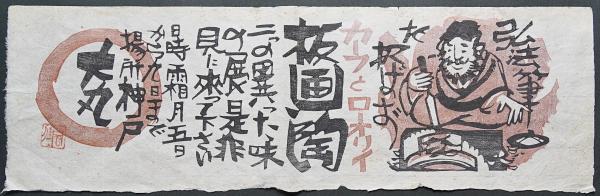 弘法筆
を択ばず
カーフとローオリイ
板画陶
二つの異った味
の展是非
見に来て下さい
時霜月五日
から九日まで
場所神戸
大丸